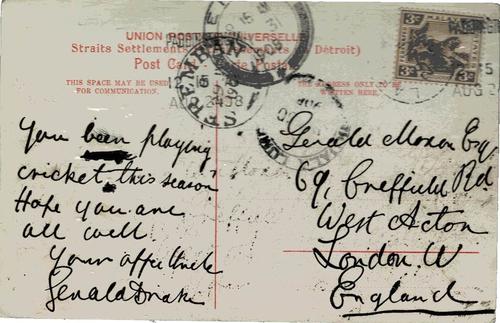 UNION POSTALE UNIVERSELLE
Straits Settlements Détroit)
Post Card Carte Postale
THIS SPACE MAY BE USED
FOR COMMUNICATION.
THE ADDRESS ONLY TO BE
WRITTEN HERE.
SEREMBAN
You been playing
cricket, this season
Hope you are
all well
Your affec Uncle
Gerald Drake
Gerald Moxon Esq
69, Creffield Rd
West Acton
London W
England